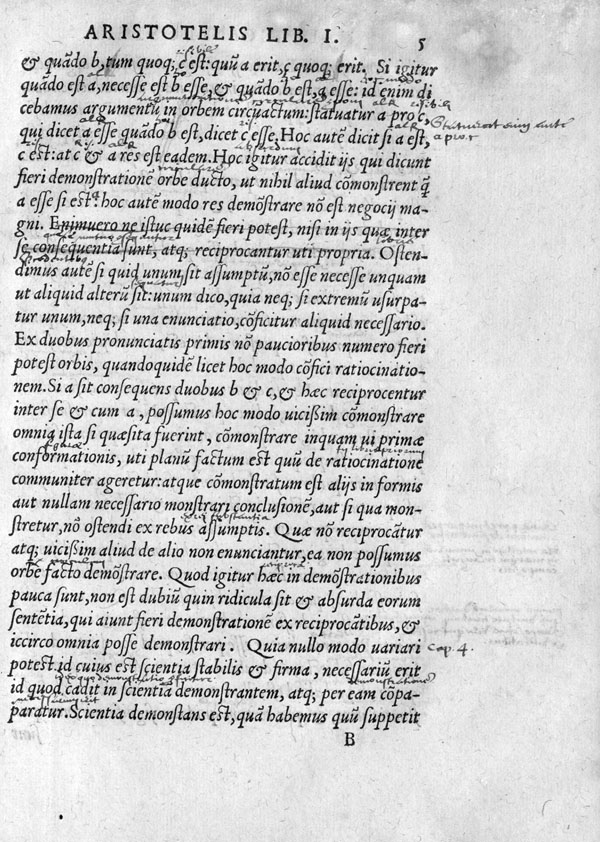 ARISTOTELIS LIB. I. 5
& quãdo b, tum quoq; c est: quũ a erit, c quoq; erit. Si igitur
quãdo est a, necesse est b esse, & quãdo b est, a esse: id enim di
cebamus argumentũ in orbem circũactum: statuatur a pro c,
qui dicet a esse quãdo b est, dicet c esse. Hoc autẽ dicit si a est,
c est: at c & a res est eadem. Hoc igitur accidit ijs qui dicunt
fieri demonstrationẽ orbe ducto, ut nihil aliud cõmonstrent q̃
a esse si est a: hoc autẽ modo res demõstrare nõ est negocij ma-
gni. Enimuero ne istuc quidẽ fieri potest, nisi in ijs quæ inter
se consequentia sunt, atq; reciprocantur uti propria. Osten-
dimus autẽ si quid unum sit assumptũ, nõ esse necesse unquam
ut aliquid alterũ sit: unum dico, quia neq; si extremũ usurpa-
tur unum, neq; si una enunciatio, cõficitur aliquid necessario.
Ex duobus pronunciatis primis nõ paucioribus numero fieri
potest orbis, quandoquidẽ licet hoc modo cõfici ratiocinatio-
nem. Si a sit consequens duobus b & c, & hæc reciprocentur
inter se & cum a, possumus hoc modo uicißim cõmonstrare
omnia ista si quæsita fuerint, cõmonstrare inquam ui primæ
conformationis, uti planũ factum est quũ de ratiocinatione
communiter ageretur: atque cõmonstratum est alijs in formis
aut nullam necessario monstrari conclusionẽ, aut si qua mon-
stretur, nõ ostendi ex rebus assumptis. Quæ nõ reciprocãtur
atq; uicißim aliud de alio non enunciantur, ea non possumus
orbe facto demõstrare. Quod igitur hæc in demõstrationibus
pauca sunt, non est dubiũ quin ridicula sit & absurda eorum
sentẽtia, qui aiunt fieri demonstrationẽ ex reciprocãtibus, &
iccirco omnia posse demonstrari. Quia nullo modo uariari
Cap. 4.
potest id cuius est scientia stabilis & firma, necessariũ erit
id quod cadit in scientiã demonstrantem, atq; per eam cõpa-
paratur. Scientia demonstans est, quã habemus quũ suppetit
B